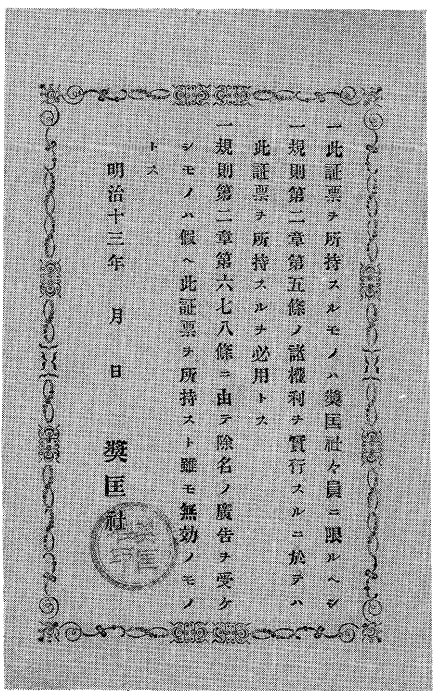 一此証票ヲ所持スルモノハ奬匡社々員ニ限ルヘシ
一規則第二章第五條ノ諸權利ヲ實行スルニ於テハ
此証票ヲ所持スルヲ必用トス
一規則第二章第六七八條ニ由テ除名ノ廣告ヲ受ケ
シモノハ假ヘ此証票ヲ所持スト雖モ無効ノモノ
トス
明治十三年　月　日
奬匡社
奬匡
社印